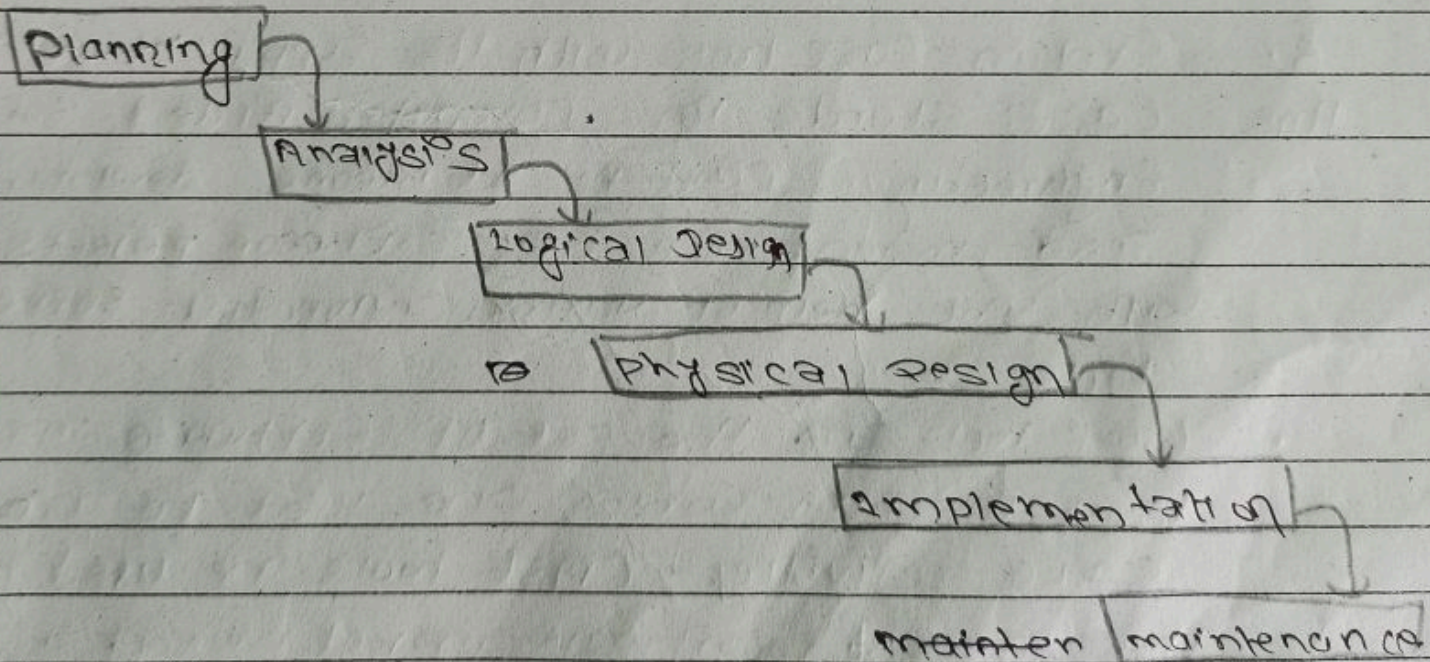 Planning
Analysis
Logical Design
Physical Design
Implementation
mainten maintenance